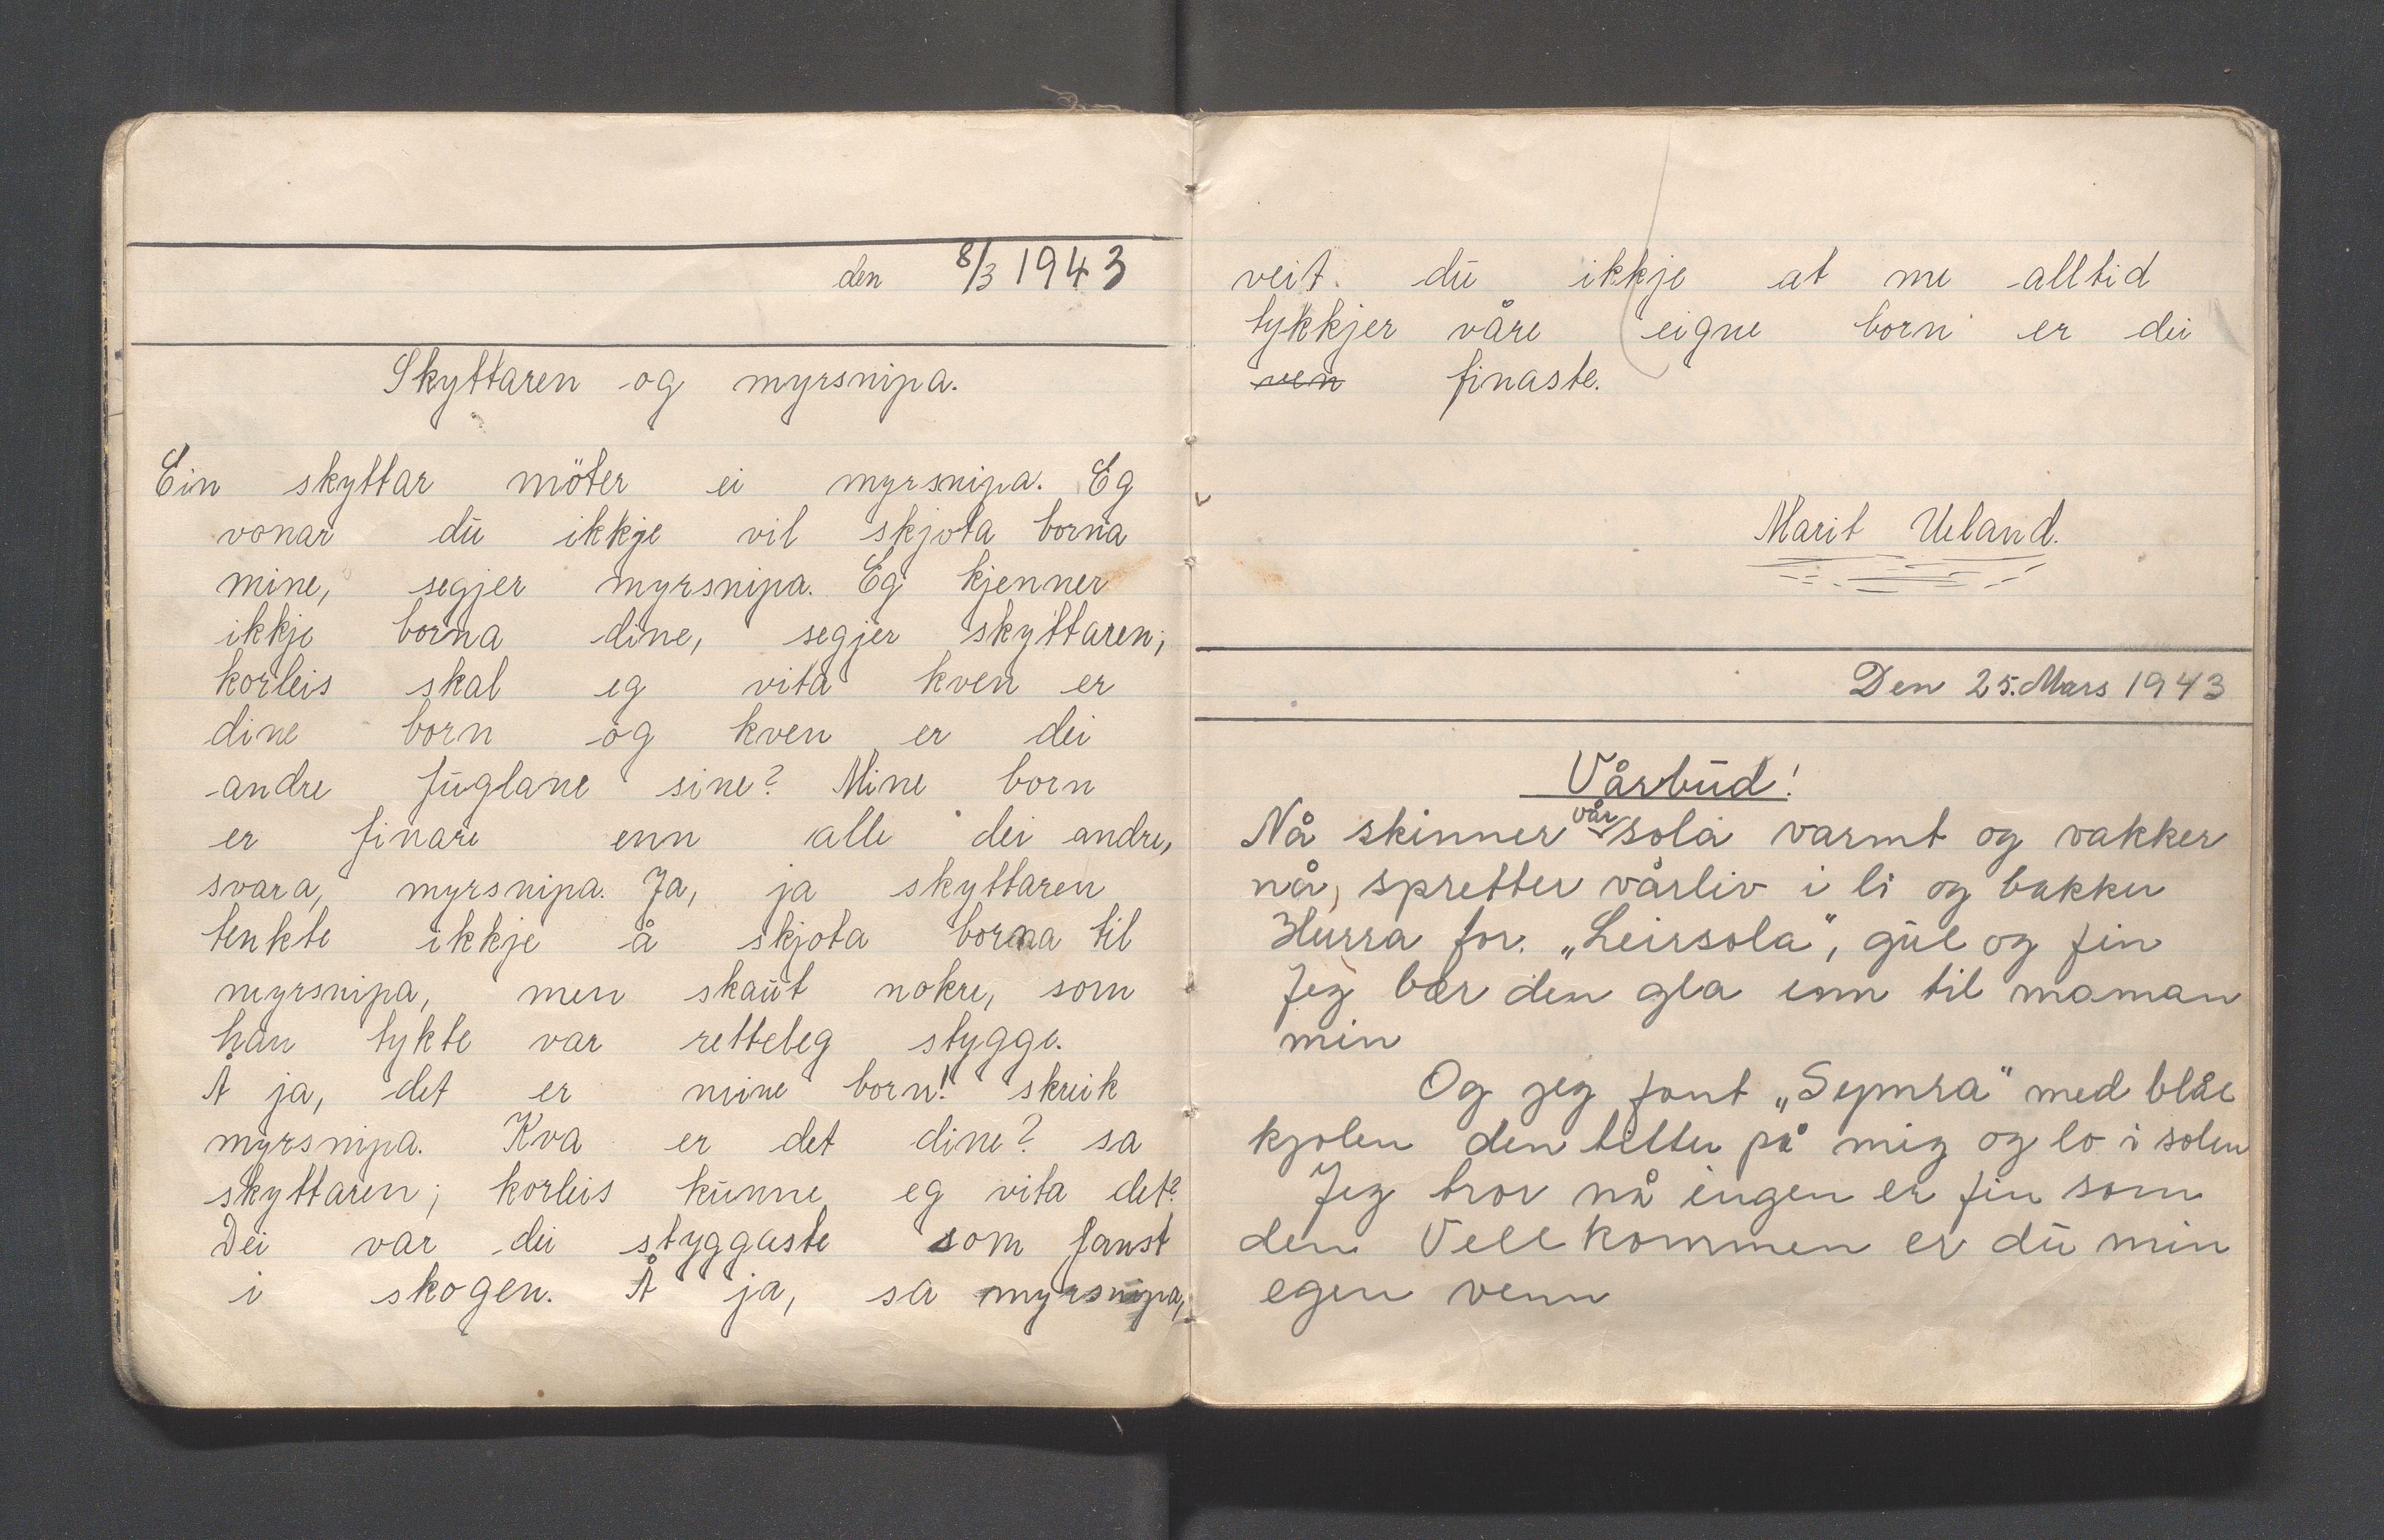 den 8/3 1943
Skyttaren og myrsnipa.
Ein skyttar möter ei myrsnipa. Eg
vonar du ikkje vil skjota borna
mine, segjer myrsnipa. Eg kjenner
ikkje borna dine, segjer skyttaren;
korleis skal eg vita kven er
dine born og kven er dei
andre fuglane sine? Mine born
er finare enn alle dei andre,
svara, myrsnipa. Ja, ja skyttaren
tenkte ikkje å skjota borna til
myrsnipa, men skaut nokre, som
han tykte var retteleg stygge.
Å ja, det er mine born! skreik
myrsnipa. Kva er det dine? sa
skyttaren; korleis kunne eg vita det?
Dei var dei styggaste som fanst
i skogen. Å ja, sa myrsnipa,
veit du ikkje at me alltid
tykkjer våre eigne born er dei
ven finaste.
Marit Ueland.
Den 25. Mars 1943
Vårbud!
Nå skinner vårsola varmt og vakker
nå, spretter vårliv i li og bakker
Hurra for. „Leirsola", gul og fin
Jeg bær den gla inn til maman
min
Og jeg fant „Symra" med blåe
kjolen den titter på mig og lo i solen
Jeg tror nå ingen er fin som
den Vellkommen er du min
egen venn